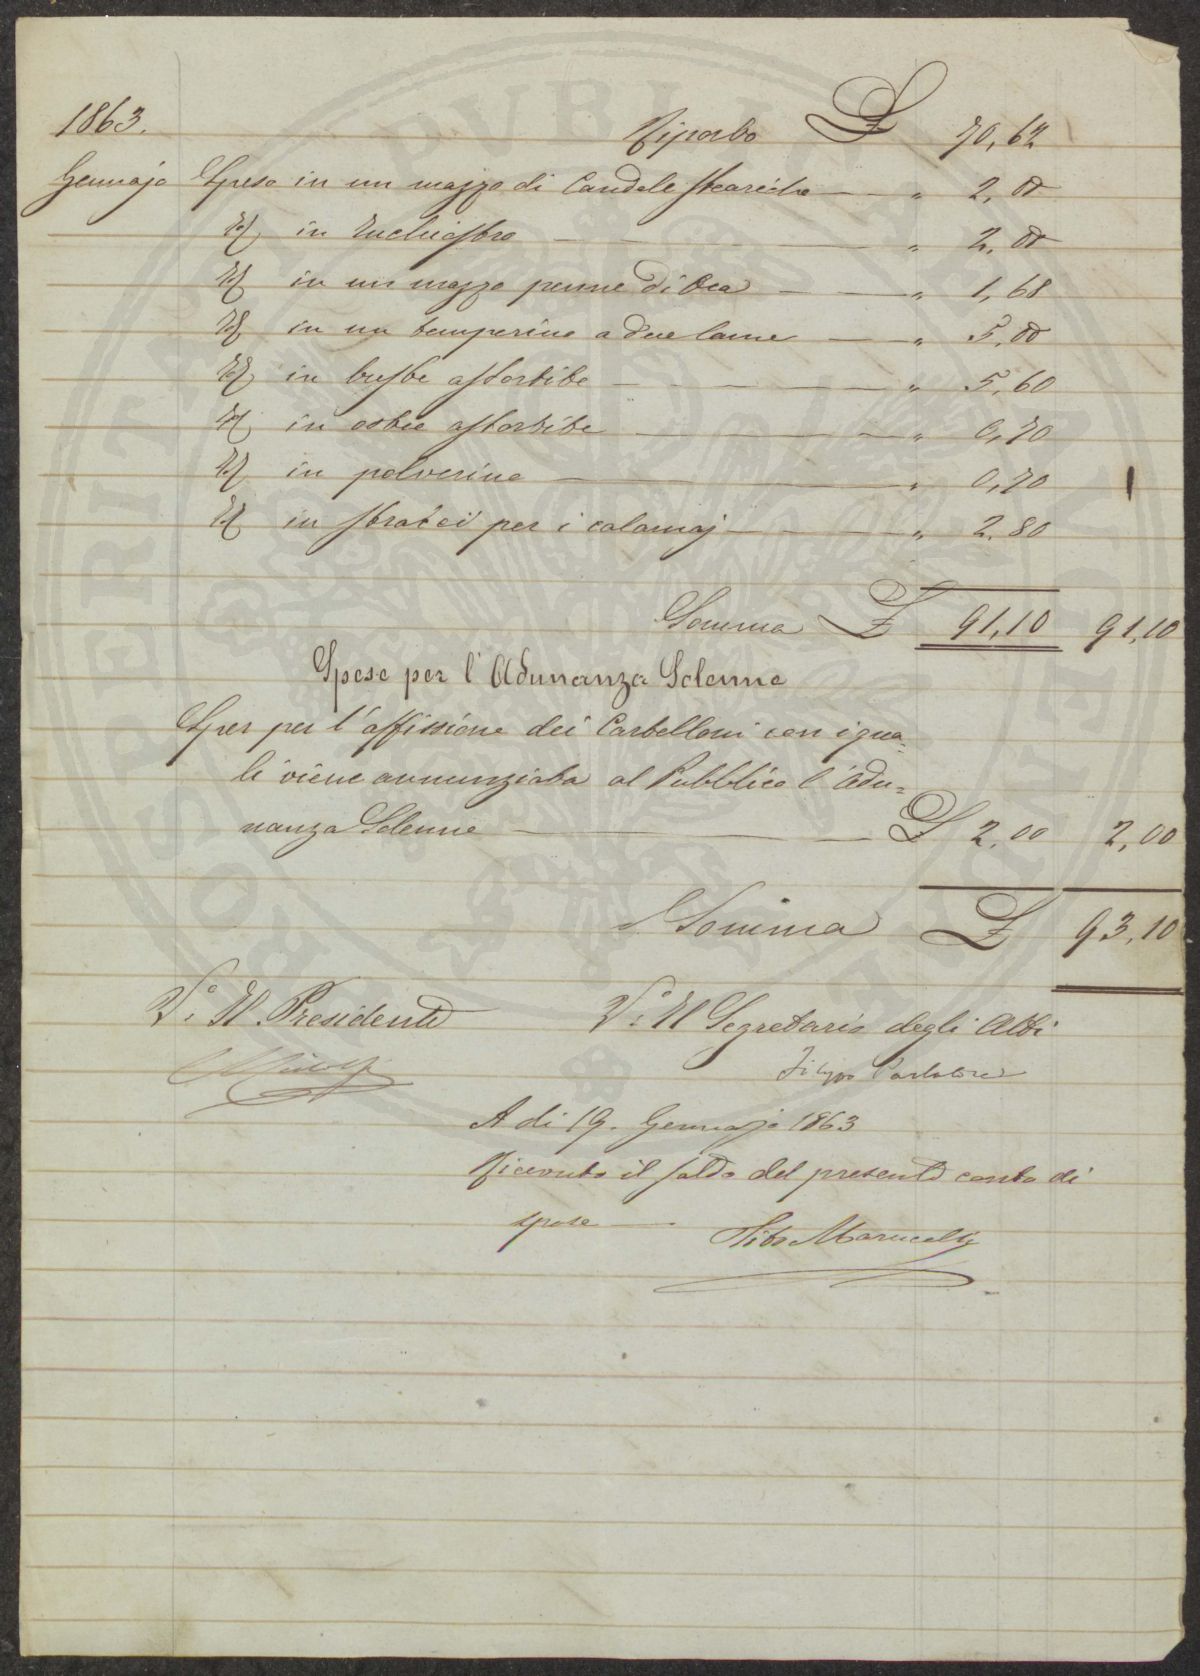 1863.
Riporto £ 70,62
Gennajo Speso in un mazzo di Candele steariche — " 2,00
Id in Inchiostro — " 2,00
Id in un mazzo penne di Oca — " 1,68
Id in un temperino a due lame — " 5,00
Id in buste assortite — " 5,60
Id in ostie assortite — " 0,70
Id in polverino — " 0,70
Id in stracci per i calamaj — " 2,80
Somma £ 91,10 91,10
Spese per l'Adunanza Solenne
Spes per l'affissione dei Cartelloni con i qua=
li viene annunziata al Pubblico l'Adu=
nanza Solenne — £ 2,00 2,00
Somma £ 93,10
V.° Il Presidente
V.° Il Segretario degli Atti
Filippo Parlatore
A di 19. Gennajo 1863
Ricevuto il saldo del presente conto di
spese —
Tito Marucelli
PROSPERITATI PUBLICAE AUGENDAE